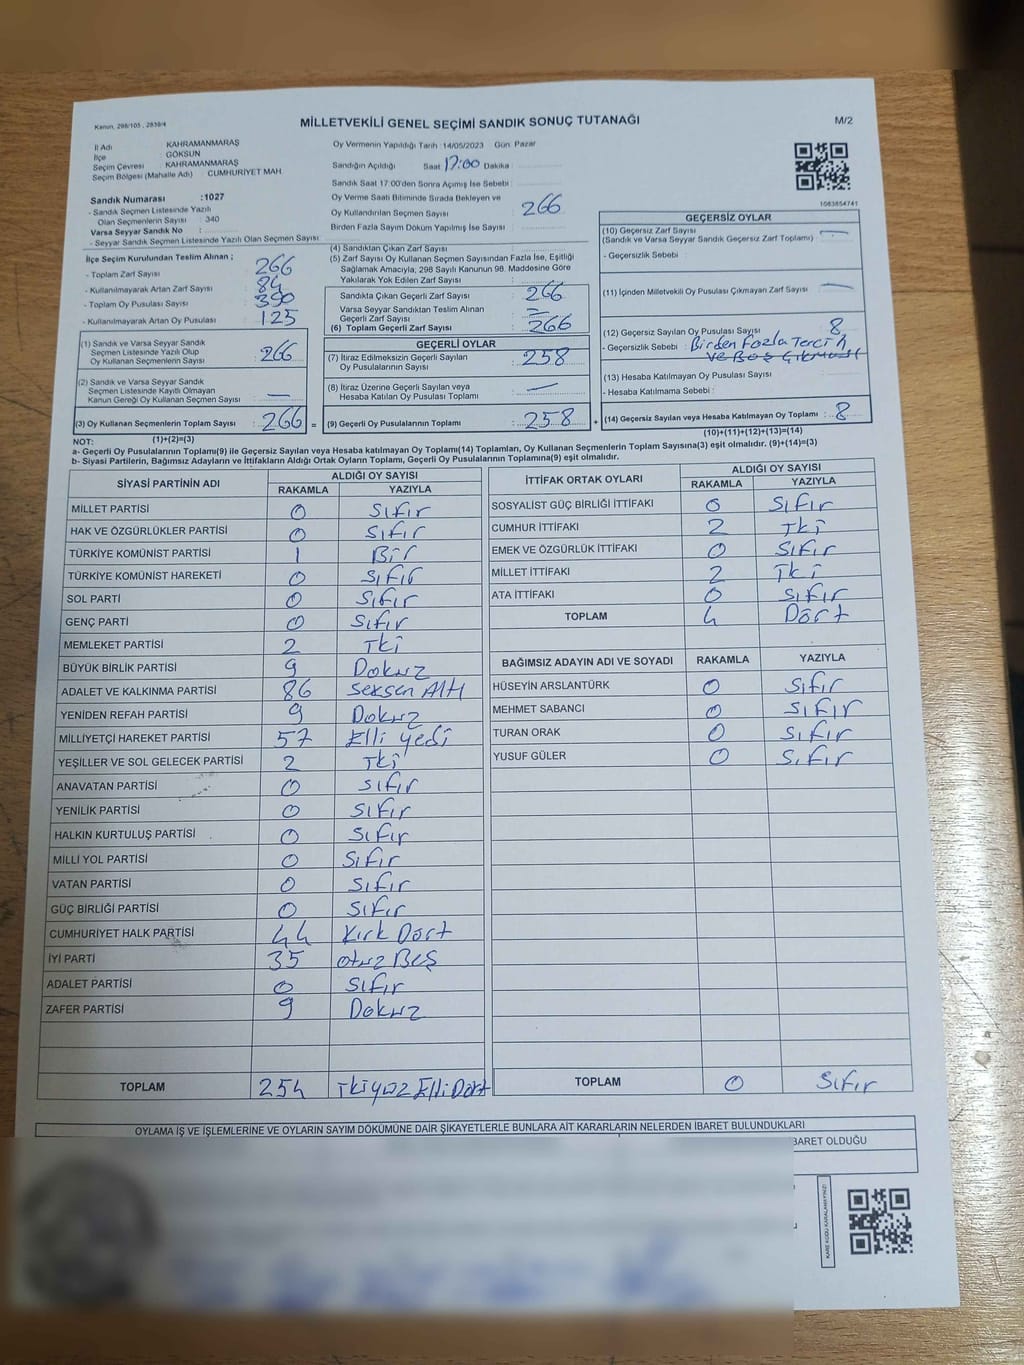 Kanun, 298/105 , 2839/4
MİLLETVEKİLİ GENEL SEÇİMİ SANDIK SONUÇ TUTANAĞI
M/2
İl Adı KAHRAMANMARAŞ
İlçe GÖKSUN
Seçim Çevresi KAHRAMANMARAŞ
Seçim Bölgesi (Mahalle Adı) : CUMHURİYET MAH
Sandık Numarası :1027
- Sandık Seçmen Listesinde Yazılı
Olan Seçmenlerin Sayısı : 340
Varsa Seyyar Sandık No :
- Seyyar Sandık Seçmen Listesinde Yazılı Olan Seçmen Sayısı :
Oy Vermenin Yapıldığı Tarih : 14/05/2023 Gün Pazar
Sandığın Açıldığı Saat 17:00 Dakika :
Sandık Saat 17:00'den Sonra Açımış İse Sebebi :
Oy Verme Saati Bitiminde Sırada Bekleyen ve
Oy Kullandırılan Seçmen Sayısı : 266
Birden Fazla Sayım Döküm Yapılmış İse Sayısı :
1083854741
İlçe Seçim Kurulundan Teslim Alınan ;
- Toplam Zarf Sayısı : 266
- Kullanılmayarak Artan Zarf Sayısı : 84
- Toplam Oy Pusulası Sayısı : 390
- Kullanılmayarak Artan Oy Pusulası : 125
(1) Sandık ve Varsa Seyyar Sandık
Seçmen Listesinde Yazılı Olup
Oy Kullanan Seçmenlerin Sayısı : 266
(2) Sandık ve Varsa Seyyar Sandık
Seçmen Listesinde Kayıtlı Olmayan
Kanun Gereği Oy Kullanan Seçmen Sayısı : —
(3) Oy Kullanan Seçmenlerin Toplam Sayısı : 266 =
(1)+(2)=(3)
(4) Sandıktan Çıkan Zarf Sayısı :
(5) Zarf Sayısı Oy Kullanan Seçmen Sayısından Fazla İse, Eşitliği
Sağlamak Amacıyla, 298 Sayılı Kanunun 98. Maddesine Göre
Yakılarak Yok Edilen Zarf Sayısı :
Sandıkta Çıkan Geçerli Zarf Sayısı : 266
Varsa Seyyar Sandıktan Teslim Alınan
Geçerli Zarf Sayısı : —
(6) Toplam Geçerli Zarf Sayısı : 266
GEÇERLİ OYLAR
(7) İtiraz Edilmeksizin Geçerli Sayılan
Oy Pusulalarının Sayısı : 258
(8) İtiraz Üzerine Geçerli Sayılan veya
Hesaba Katılan Oy Pusulası Toplamı : —
(9) Geçerli Oy Pusulalarının Toplamı : 258 +
GEÇERSİZ OYLAR
(10) Geçersiz Zarf Sayısı
(Sandık ve Varsa Seyyar Sandık Geçersiz Zarf Toplamı) : —
- Geçersizlik Sebebi :
(11) İçinden Milletvekili Oy Pusulası Çıkmayan Zarf Sayısı : —
(12) Geçersiz Sayılan Oy Pusulası Sayısı : 8
- Geçersizlik Sebebi : Birden Fazla Tercih
ve Boş Çıkması
(13) Hesaba Katılmayan Oy Pusulası Sayısı :
- Hesaba Katılmama Sebebi :
(14) Geçersiz Sayılan veya Hesaba Katılmayan Oy Toplamı : 8
(10)+(11)+(12)+(13)=(14)
NOT:
a- Geçerli Oy Pusulalarının Toplamı(9) ile Geçersiz Sayılan veya Hesaba katılmayan Oy Toplamı(14) Toplamları, Oy Kullanan Seçmenlerin Toplam Sayısına(3) eşit olmalıdır. (9)+(14)=(3)
b- Siyasi Partilerin, Bağımsız Adayların ve İttifakların Aldığı Ortak Oyların Toplamı, Geçerli Oy Pusulalarının Toplamına(9) eşit olmalıdır.
SİYASİ PARTİNİN ADI
ALDIĞI OY SAYISI
RAKAMLA YAZIYLA
MİLLET PARTİSİ 0 Sıfır
HAK VE ÖZGÜRLÜKLER PARTİSİ 0 Sıfır
TÜRKİYE KOMÜNİST PARTİSİ 1 Bir
TÜRKİYE KOMÜNİST HAREKETİ 0 Sıfır
SOL PARTİ 0 Sıfır
GENÇ PARTİ 0 Sıfır
MEMLEKET PARTİSİ 2 İki
BÜYÜK BİRLİK PARTİSİ 9 Dokuz
ADALET VE KALKINMA PARTİSİ 86 Seksen Altı
YENİDEN REFAH PARTİSİ 9 Dokuz
MİLLİYETÇİ HAREKET PARTİSİ 57 Elli yedi
YEŞİLLER VE SOL GELECEK PARTİSİ 2 İki
ANAVATAN PARTİSİ 0 Sıfır
YENİLİK PARTİSİ 0 Sıfır
HALKIN KURTULUŞ PARTİSİ 0 Sıfır
MİLLİ YOL PARTİSİ 0 Sıfır
VATAN PARTİSİ 0 Sıfır
GÜÇ BİRLİĞİ PARTİSİ 0 Sıfır
CUMHURİYET HALK PARTİSİ 44 Kırk Dört
İYİ PARTİ 35 Otuz Beş
ADALET PARTİSİ 0 Sıfır
ZAFER PARTİSİ 9 Dokuz
TOPLAM 254 İkiyüz Elli Dört
İTTİFAK ORTAK OYLARI
ALDIĞI OY SAYISI
RAKAMLA YAZIYLA
SOSYALİST GÜÇ BİRLİĞİ İTTİFAKI 0 Sıfır
CUMHUR İTTİFAKI 2 İki
EMEK VE ÖZGÜRLÜK İTTİFAKI 0 Sıfır
MİLLET İTTİFAKI 2 İki
ATA İTTİFAKI 0 Sıfır
TOPLAM 4 Dört
BAĞIMSIZ ADAYIN ADI VE SOYADI RAKAMLA YAZIYLA
HÜSEYİN ARSLANTÜRK 0 Sıfır
MEHMET SABANCI 0 Sıfır
TURAN ORAK 0 Sıfır
YUSUF GÜLER 0 Sıfır
TOPLAM 0 Sıfır
OYLAMA İŞ VE İŞLEMLERİNE VE OYLARIN SAYIM DÖKÜMÜNE DAİR ŞİKAYETLERLE BUNLARA AİT KARARLARIN NELERDEN İBARET BULUNDUKLARI
BARET OLDUĞU